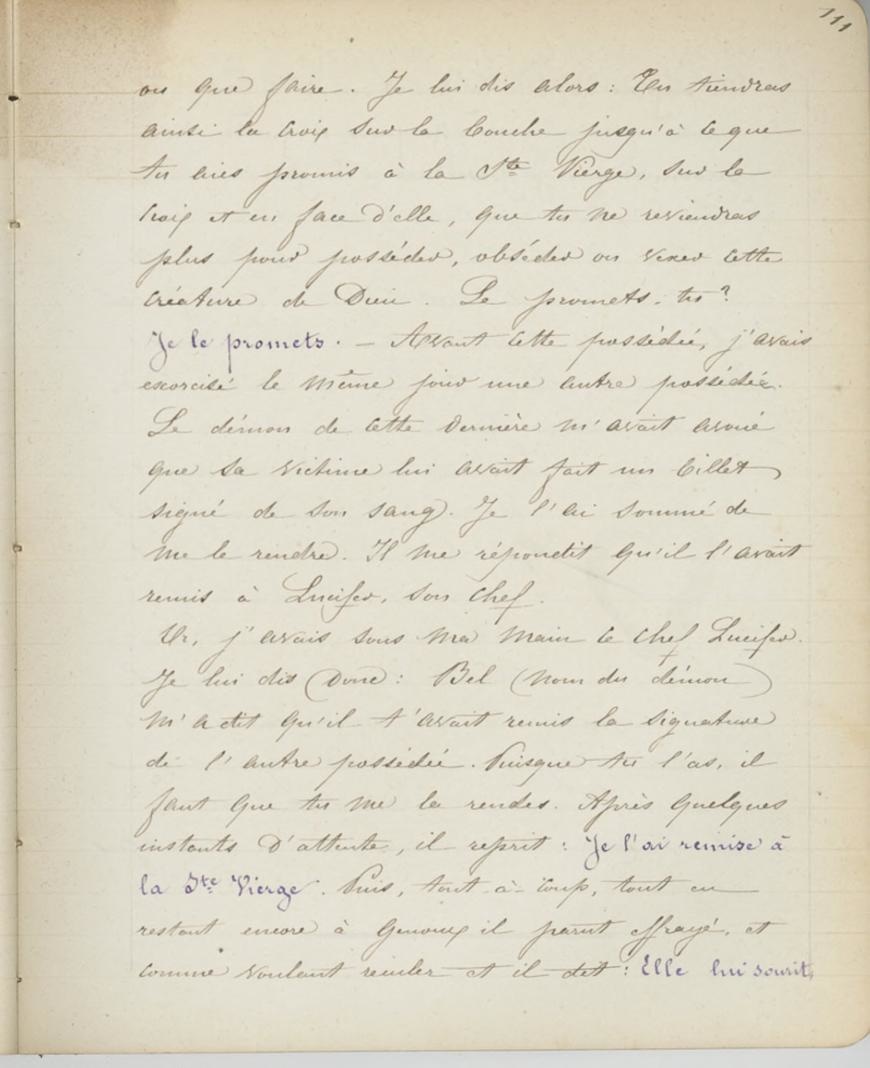 111
ou que faire. Je lui dis alors : Tu tiendras
ainsi la croix sur la bouche jusqu'à ce que
tu aies promis à la Ste Vierge, sur la
croix et en face d'elle, que tu ne reviendras
plus pour posséder, obséder ou vexer cette
créature de Dieu. Le promets-tu ?
Je le promets. — Avant cette possédée, j'avais
exorcisé le même jour une autre possédée.
Le démon de cette dernière m'avait avoué
que sa victime lui avait fait un billet
signé de son sang. Je l'ai sommé de
me le rendre. Il me répondit qu'il l'avait
remis à Lucifer, son chef.
Or, j'avais sous ma main ce chef Lucifer.
Je lui dis donc : Bel (nom du démon)
m'a dit qu'il t'avait remis la signature
de l'autre possédée. Puisque tu l'as, il
faut que tu me la rendes. Après quelques
instants d'attente, il reprit : Je l'ai remise à
la Ste Vierge. Puis, tout-à-coup, tout en
restant encore à genoux il parut effrayé, et
comme voulant reculer et il dit : Elle lui sourit,